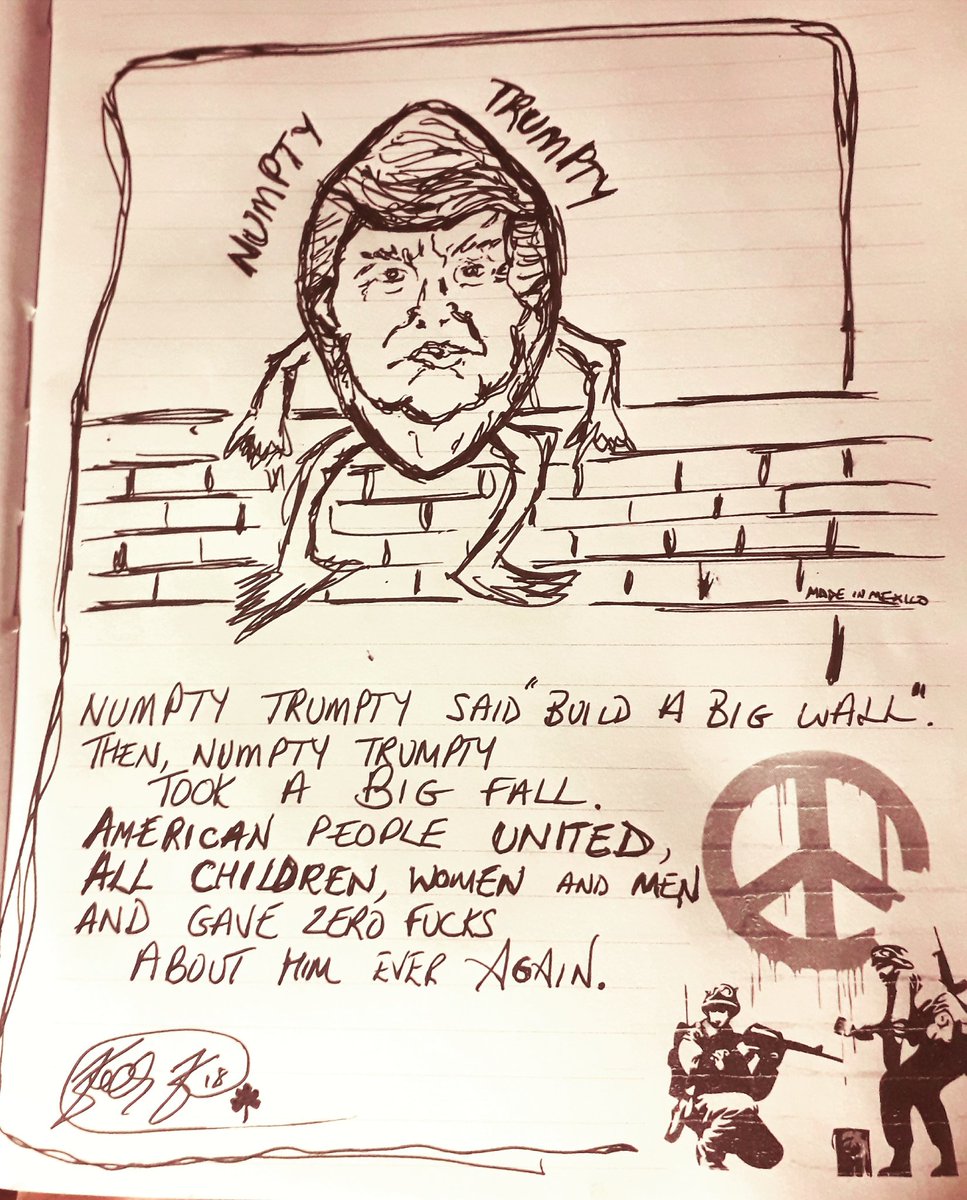 NUMPTY
TRUMPTY
MADE IN MEXICO
NUMPTY TRUMPTY SAID "BUILD A BIG WALL".
THEN, NUMPTY TRUMPTY
TOOK A BIG FALL.
AMERICAN PEOPLE UNITED,
ALL CHILDREN, WOMEN AND MEN
AND GAVE ZERO FUCKS
ABOUT HIM EVER AGAIN.
18